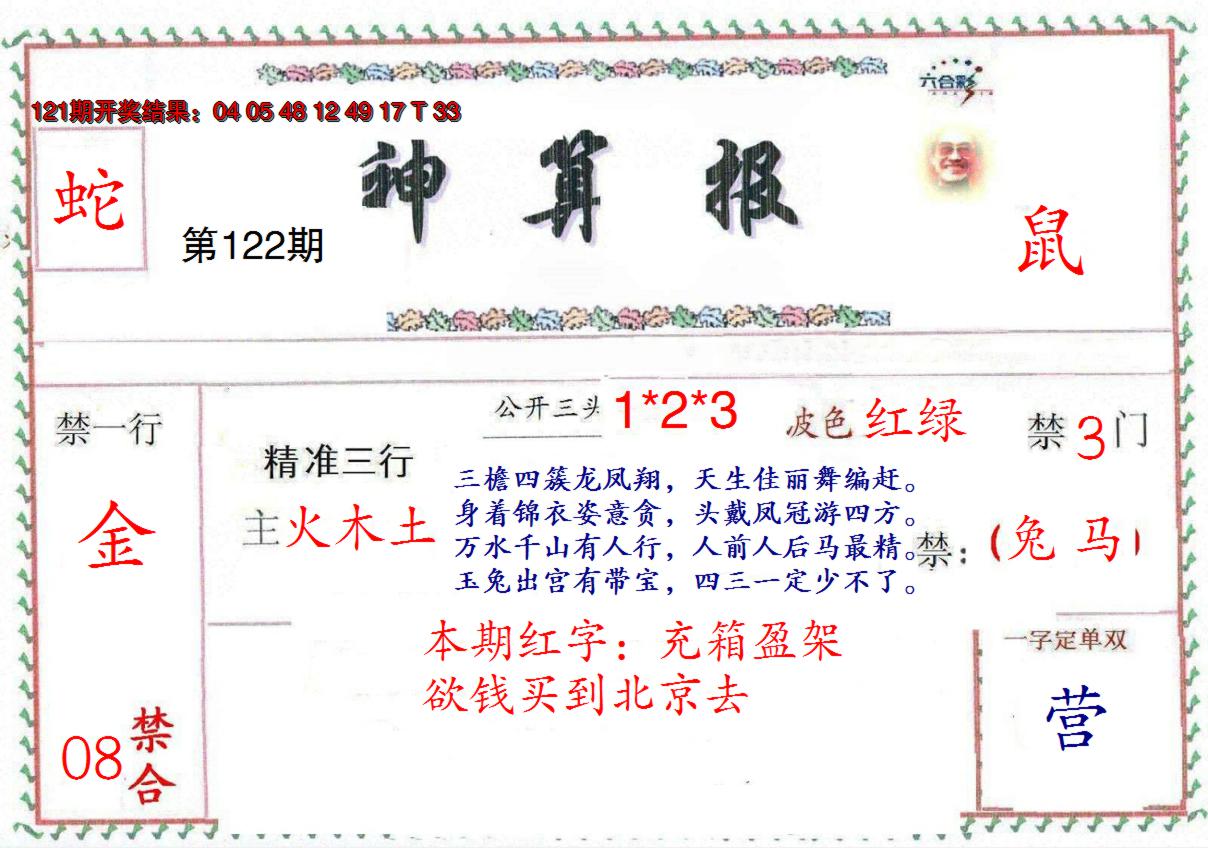 121期开奖结果：04 05 48 12 49 17 T 33
六合彩
蛇
神算报
第122期
鼠
禁一行
金
08
禁合
精准三行
主火木土
公开三头 1*2*3
波色 红绿
禁3门
三檐四簇龙凤翔，天生佳丽舞编赶。
身着锦衣姿意贪，头戴凤冠游四方。
万水千山有人行，人前人后马最精。
玉兔出宫有带宝，四三一定少不了。
禁：（兔 马）
本期红字：充箱盈架
欲钱买到北京去
一字定单双
营